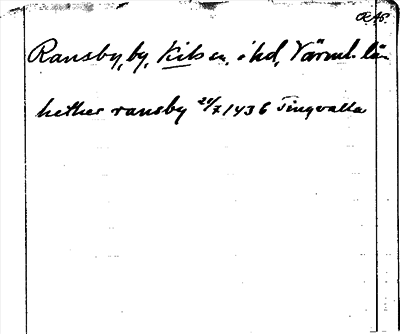 RAp.
Ransby, by, Kils sn, o hd, Värml. län
hether ransby 20/7 1436 Tingvalla